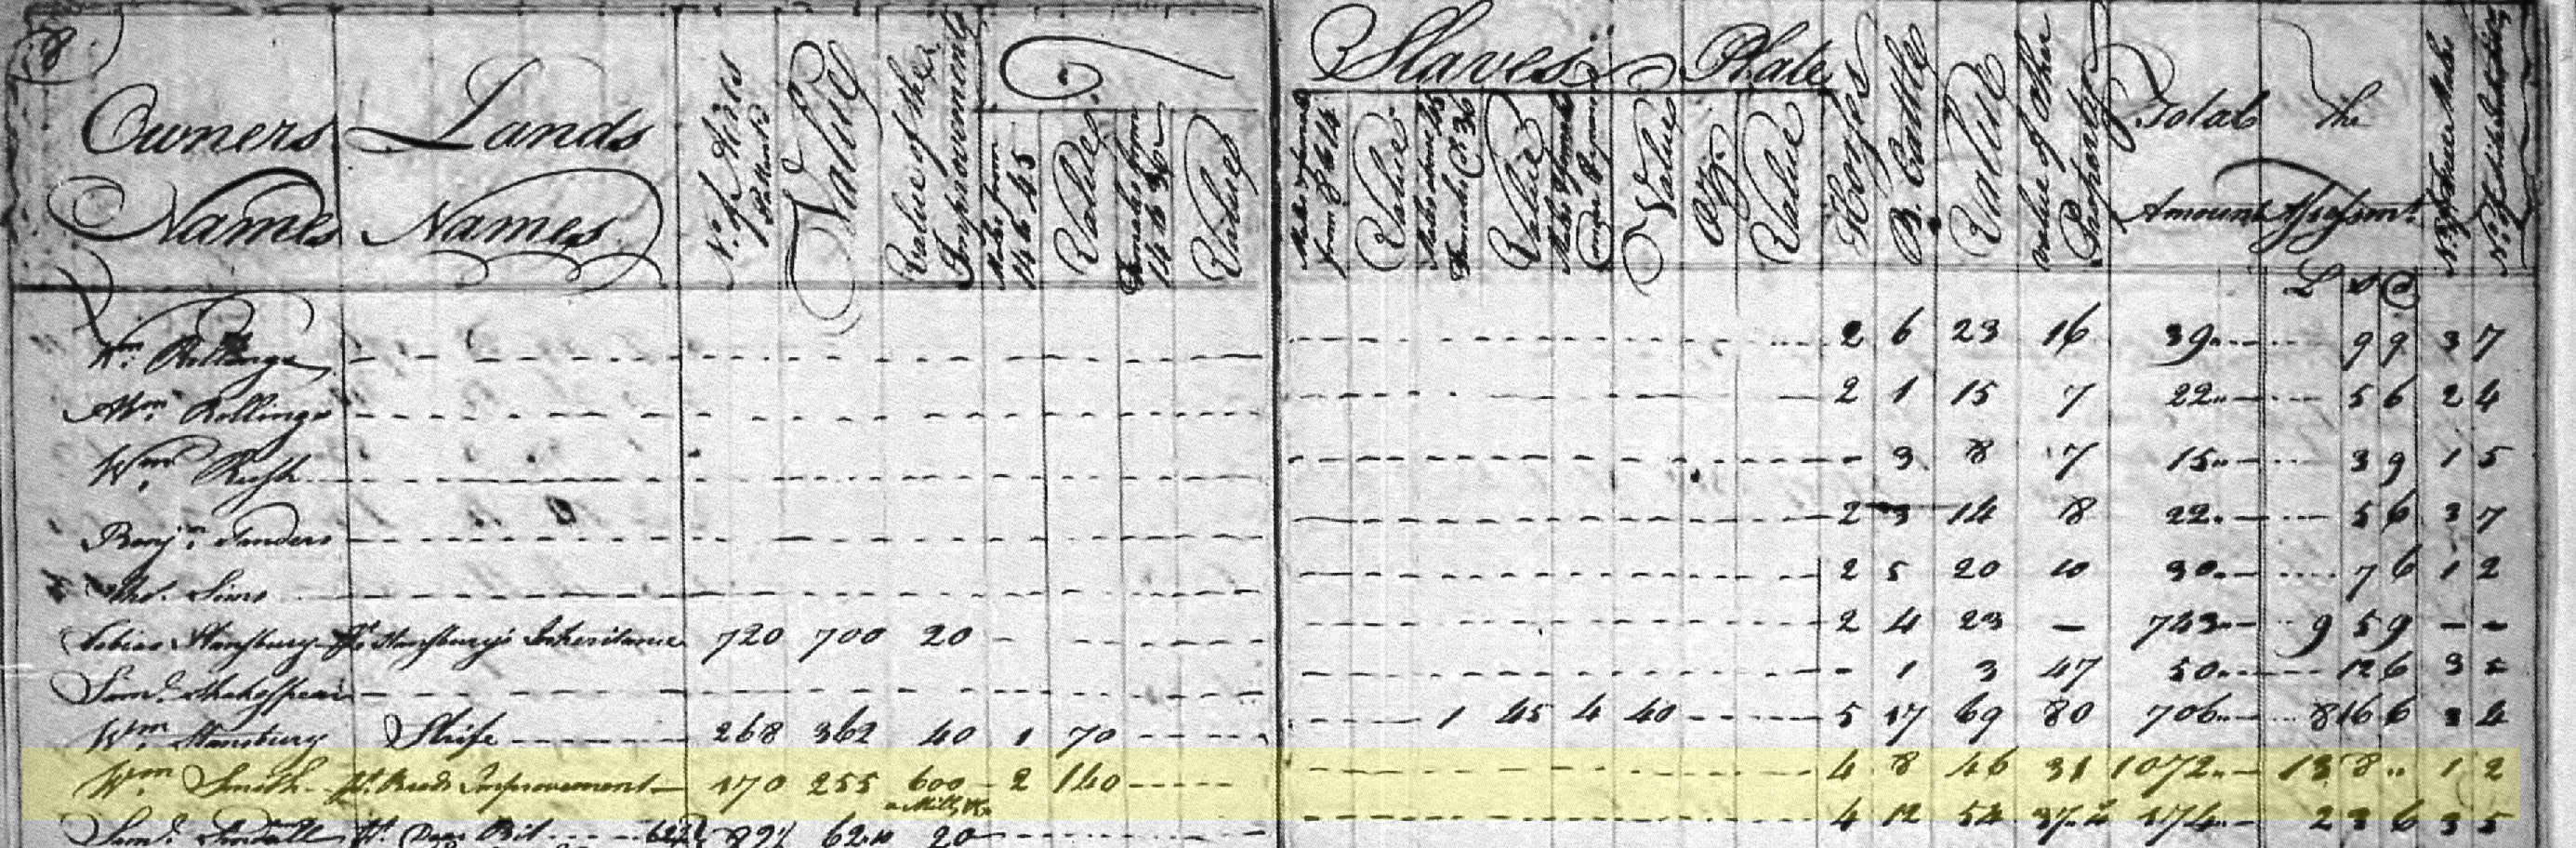 8
Owners Names Lands Names No. of Acres Patented Value Value of their Improvements Males from 14 to 45 Value Females from 14 to 36 Value Slaves Males & Females from 8 to 14 Value Males above 45 Females do 36 Value Males & Females under 8 years Value Plate Oz. Value Horses B. Cattle Value Value of other Property Total Amount The Assessmt. No. of free Males No. of white Inhabitants
£ s d
Wm. Rollings 2 6 23 16 39 9 9 3 7
Wm. Rollings 2 1 15 7 22 5 6 2 4
Wm. Rush 3 8 7 15 3 9 1 5
Benjn. Sanders 2 3 14 8 22 5 6 3 7
Tho. Sims 2 5 20 10 30 7 6 1 2
Tobias Stansbury Pt. Stansburys Inheritance 720 700 20 2 4 23 743 9 5 9
Saml. Shakespear 1 3 47 50 12 6 3
Wm. Stansbury Strife 268 362 40 1 70 1 45 4 40 5 17 69 80 706 8 16 6 2 4
Wm Smith Pt. Reeds Improvement 170 255 600 2 140 4 8 46 31 1072 13 8 1 2
a Mill &c
Saml. Sindall Pt. Dear Bit 62 20 4 12 54 37 174 2 3 6 3 5